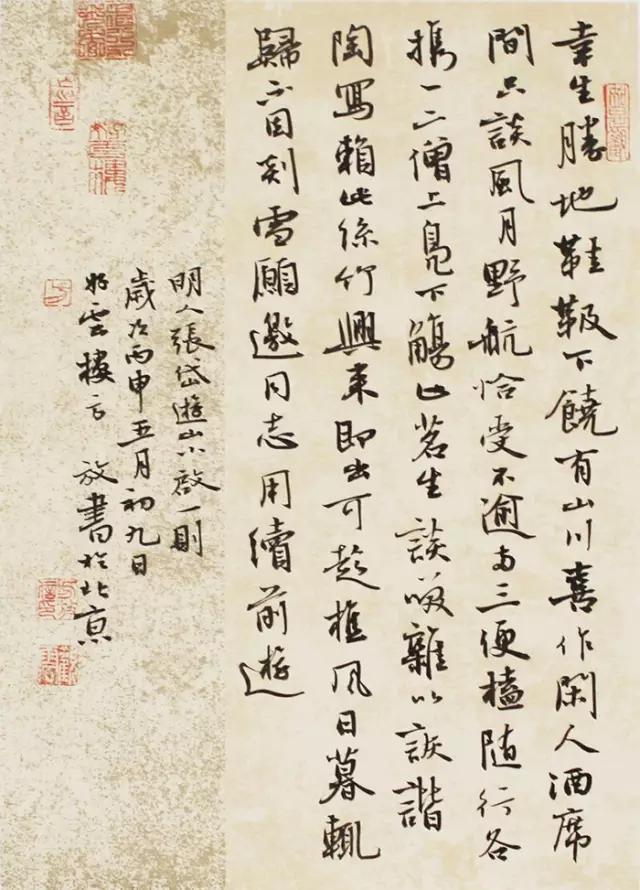 幸生勝地鞋靸下饒有山川喜作閑人酒席
間只談風月野航恰受不逾两三便榼随行各
携一二僧上鳧下觴止茗生談咲雜以詼諧
陶寫賴此絲竹興来即出可趁樵風日暮輒
歸不因剡雪願邀同志用續前遊
明人張岱遊山小啟一則
歲次丙申五月初九日
好雲樓方放書於北京